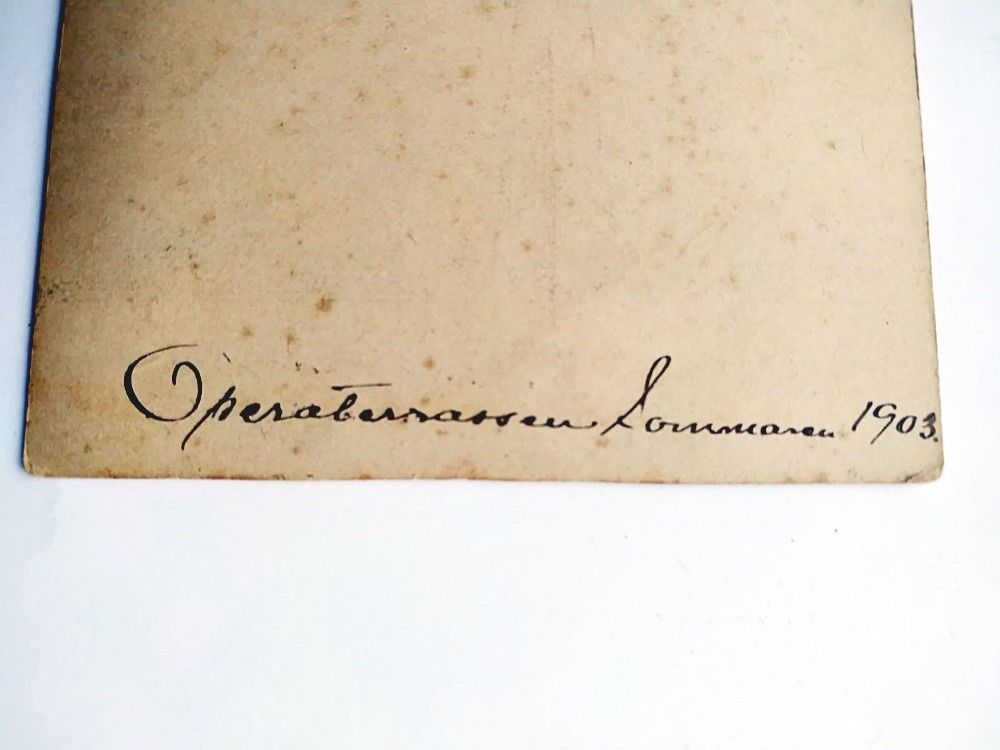 Operaterrassen Sommaren 1903.